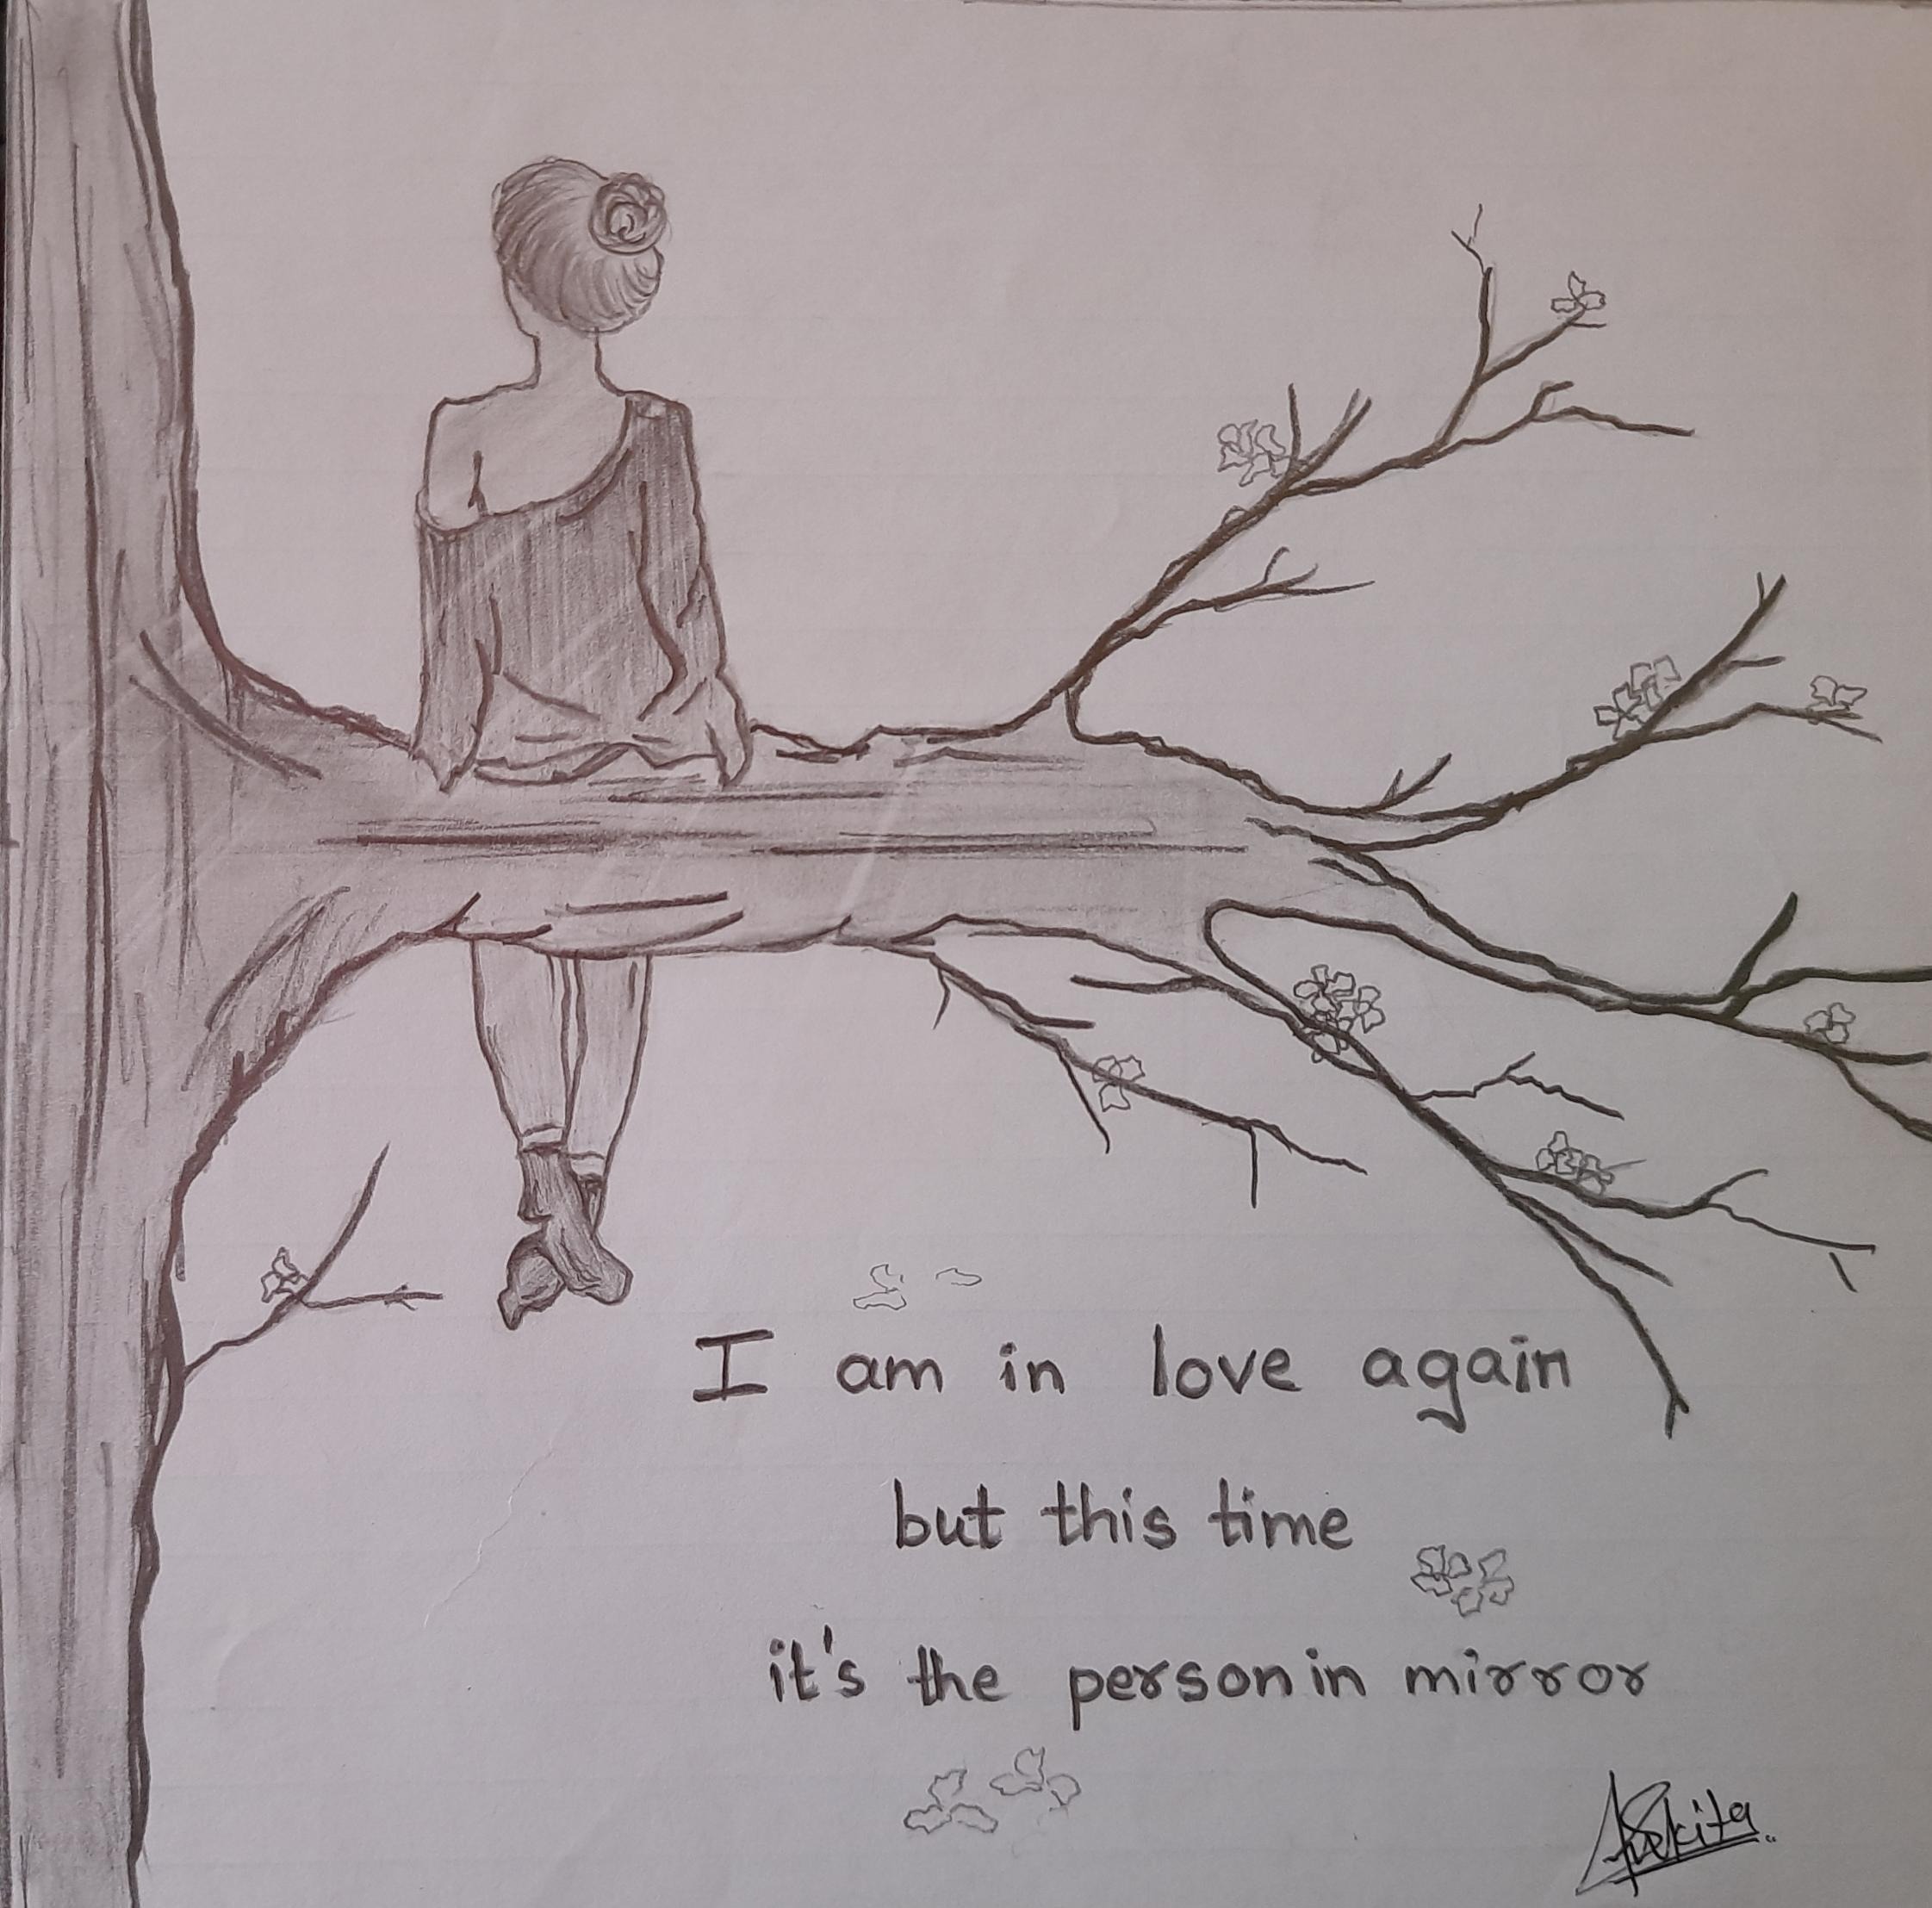 I am in love again
but this time
it's the person in mirror